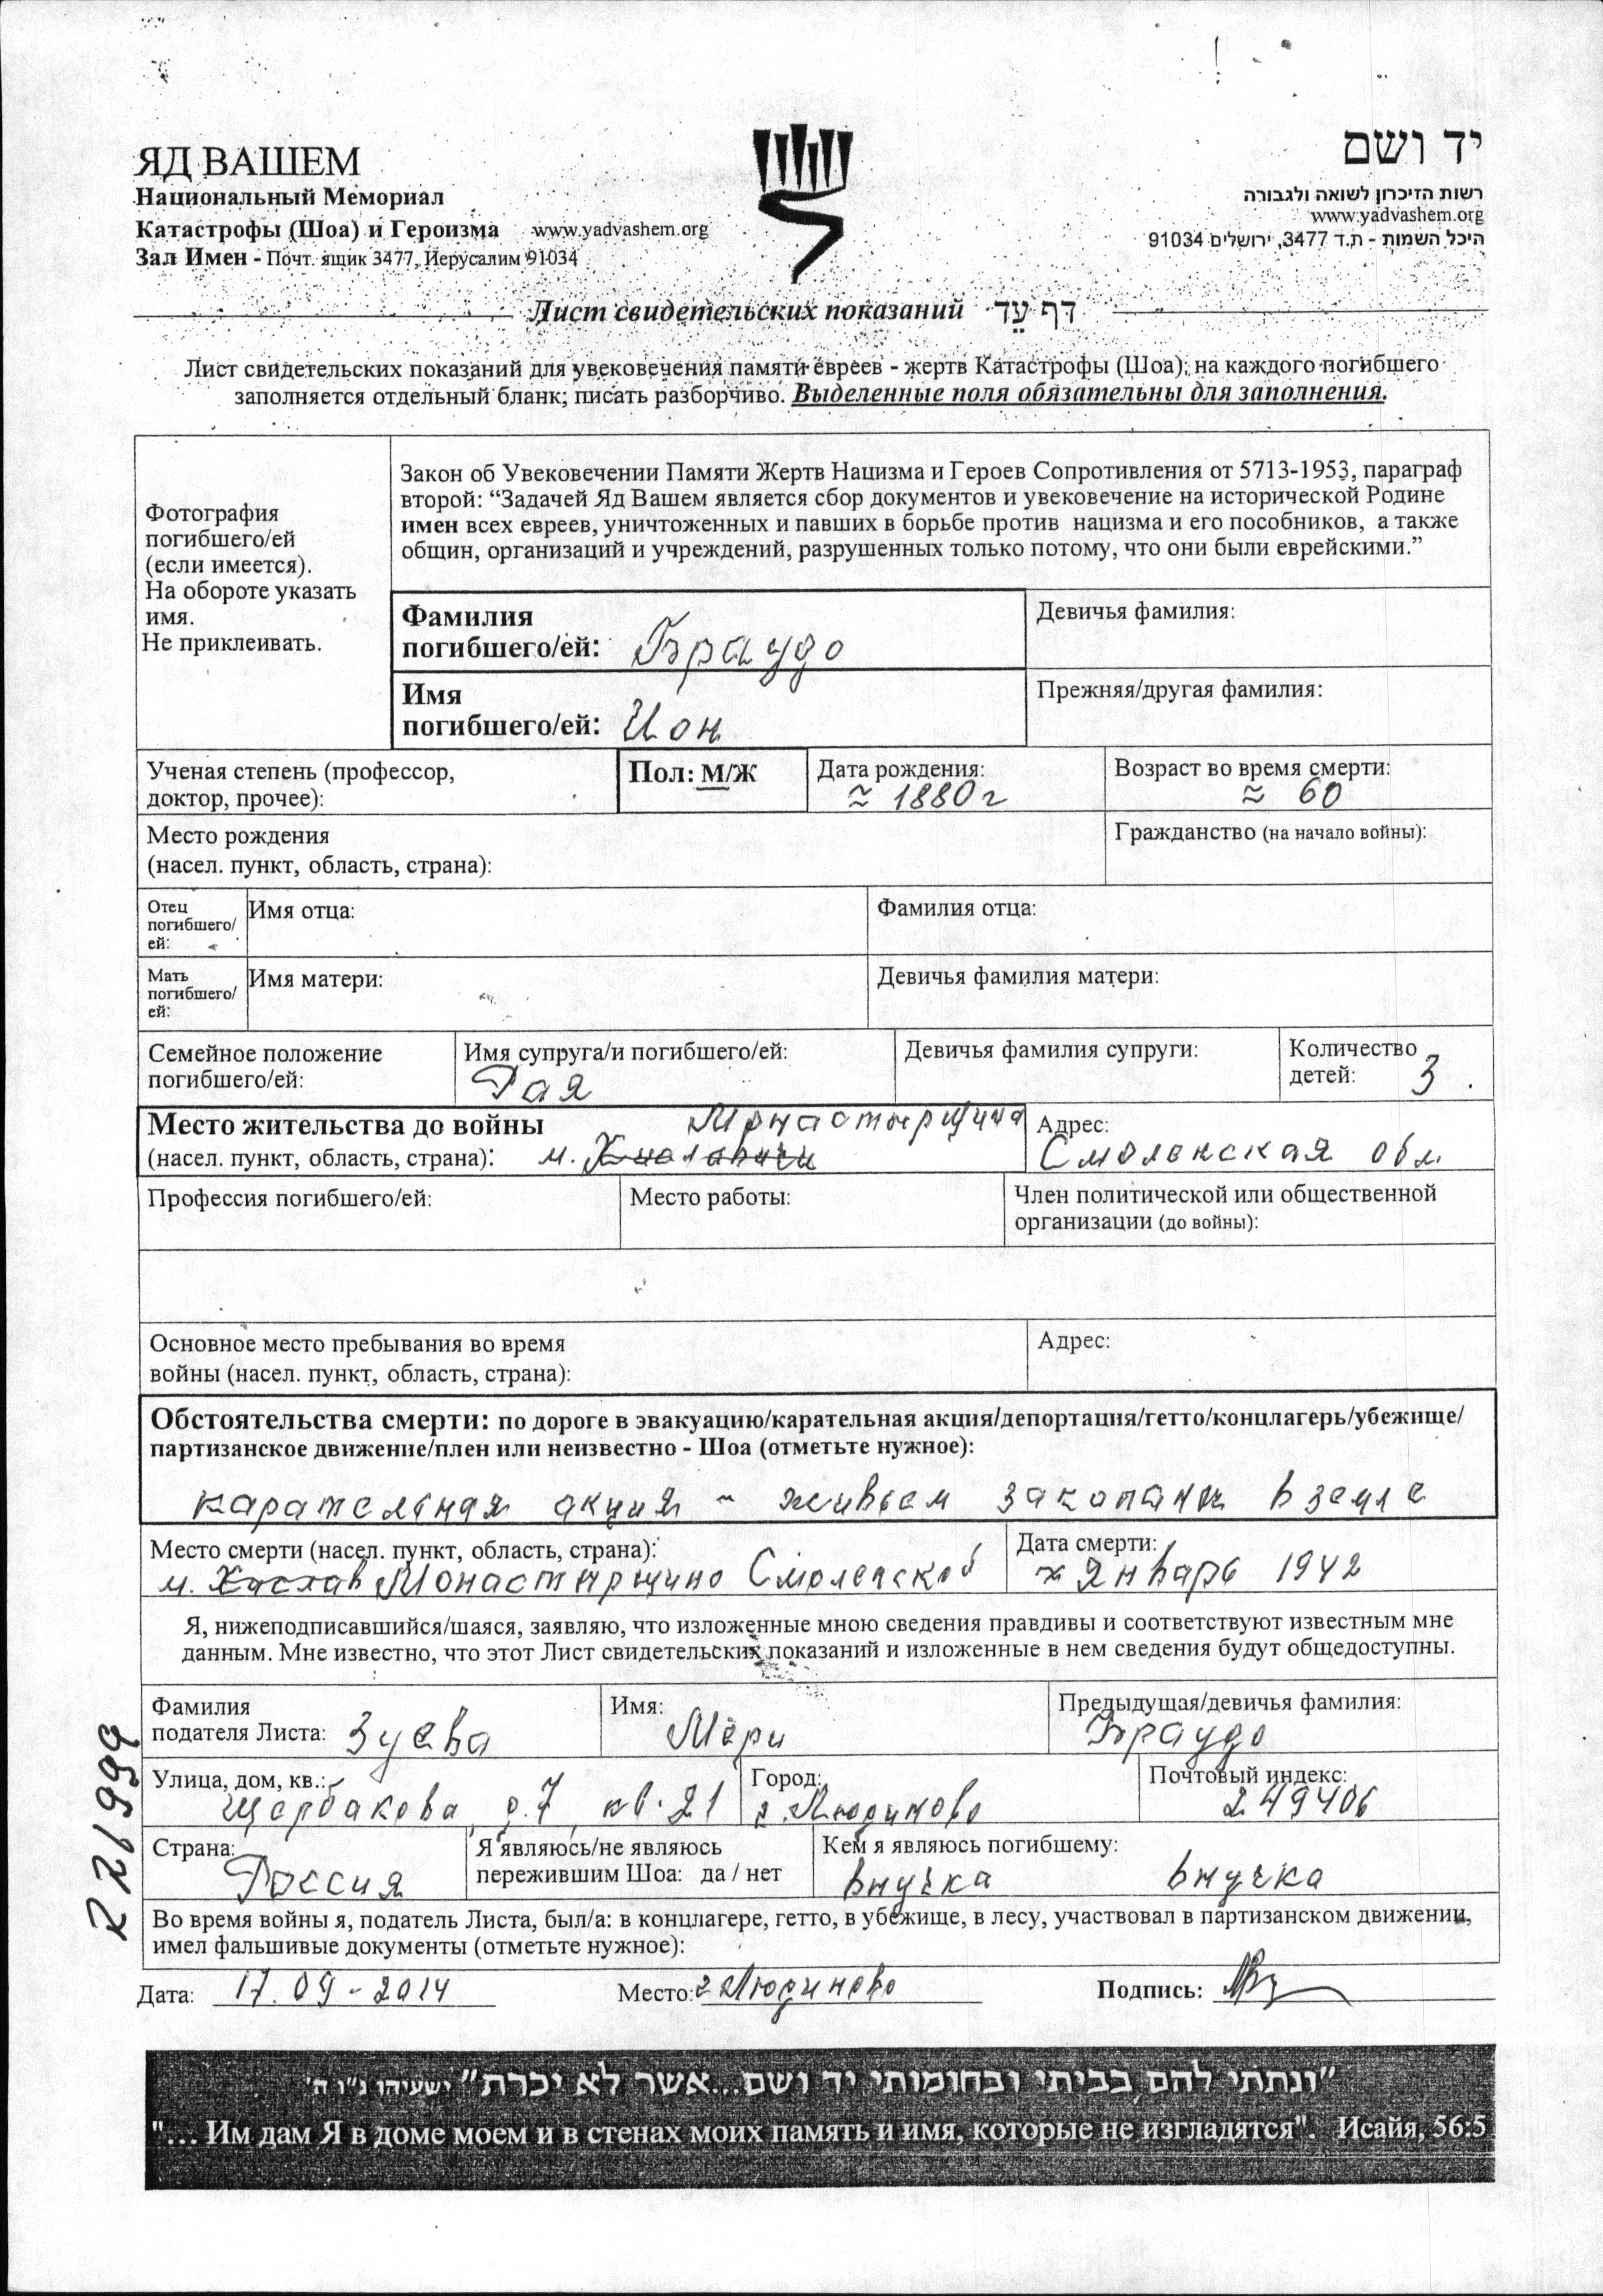 ЯД ВАШЕМ
Национальный Мемориал
Катастрофы (Шоа) и Героизма www.yadvashem.org
Зал Имен - Почт. ящик 3477, Иерусалим 91034
יד ושם
רשות הזיכרון לשואה ולגבורה
www.yadvashem.org
היכל השמות - ת.ד 3477, ירושלים 91034
Лист свидетельских показаний דף עֵד
Лист свидетельских показаний для увековечения памяти евреев - жертв Катастрофы (Шоа); на каждого погибшего
заполняется отдельный бланк; писать разборчиво. Выделенные поля обязательны для заполнения.
Фотография
погибшего/ей
(если имеется).
На обороте указать
имя.
Не приклеивать.
Закон об Увековечении Памяти Жертв Нацизма и Героев Сопротивления от 5713-1953, параграф
второй: “Задачей Яд Вашем является сбор документов и увековечение на исторической Родине
имен всех евреев, уничтоженных и павших в борьбе против нацизма и его пособников, а также
общин, организаций и учреждений, разрушенных только потому, что они были еврейскими.”
Фамилия
погибшего/ей: Браудо
Девичья фамилия:
Имя
погибшего/ей: Ион
Прежняя/другая фамилия:
Ученая степень (профессор,
доктор, прочее):
Пол: М/Ж
Дата рождения:
≈ 1880 г
Возраст во время смерти:
≈ 60
Место рождения
(насел. пункт, область, страна):
Гражданство (на начало войны):
Отец
погибшего/
ей:
Имя отца:
Фамилия отца:
Мать
погибшего/
ей:
Имя матери:
Девичья фамилия матери:
Семейное положение
погибшего/ей:
Имя супруга/и погибшего/ей:
Рая
Девичья фамилия супруги:
Количество
детей: 3
Место жительства до войны Монастырщина
(насел. пункт, область, страна): м.
Адрес:
Смоленская обл.
Профессия погибшего/ей:
Место работы:
Член политической или общественной
организации (до войны):
Основное место пребывания во время
войны (насел. пункт, область, страна):
Адрес:
Обстоятельства смерти: по дороге в эвакуацию/карательная акция/депортация/гетто/концлагерь/убежище/
партизанское движение/плен или неизвестно - Шоа (отметьте нужное):
карательная акция - живьем закопали в земле
Место смерти (насел. пункт, область, страна):
м. Монастырщино Смоленской
Дата смерти:
Январь 1942
Я, нижеподписавшийся/шаяся, заявляю, что изложенные мною сведения правдивы и соответствуют известным мне
данным. Мне известно, что этот Лист свидетельских показаний и изложенные в нем сведения будут общедоступны.
Фамилия
подателя Листа: Зуева
Имя:
Мери
Предыдущая/девичья фамилия:
Браудо
Улица, дом, кв.:
Щербакова, д. 7 кв. 21
Город:
г. Людиново
Почтовый индекс:
249406
Страна:
Россия
Я являюсь/не являюсь
пережившим Шоа: да / нет
Кем я являюсь погибшему:
внучка внучка
Во время войны я, податель Листа, был/а: в концлагере, гетто, в убежище, в лесу, участвовал в партизанском движении,
имел фальшивые документы (отметьте нужное):
Дата: 17.09-2014
Место: г Людиново
Подпись:
"ונתתי להם בביתי ובחומותי יד ושם...אשר לא יכרת" ישעיהו נ"ו ה'
"... Им дам Я в доме моем и в стенах моих память и имя, которые не изгладятся". Исайя, 56:5